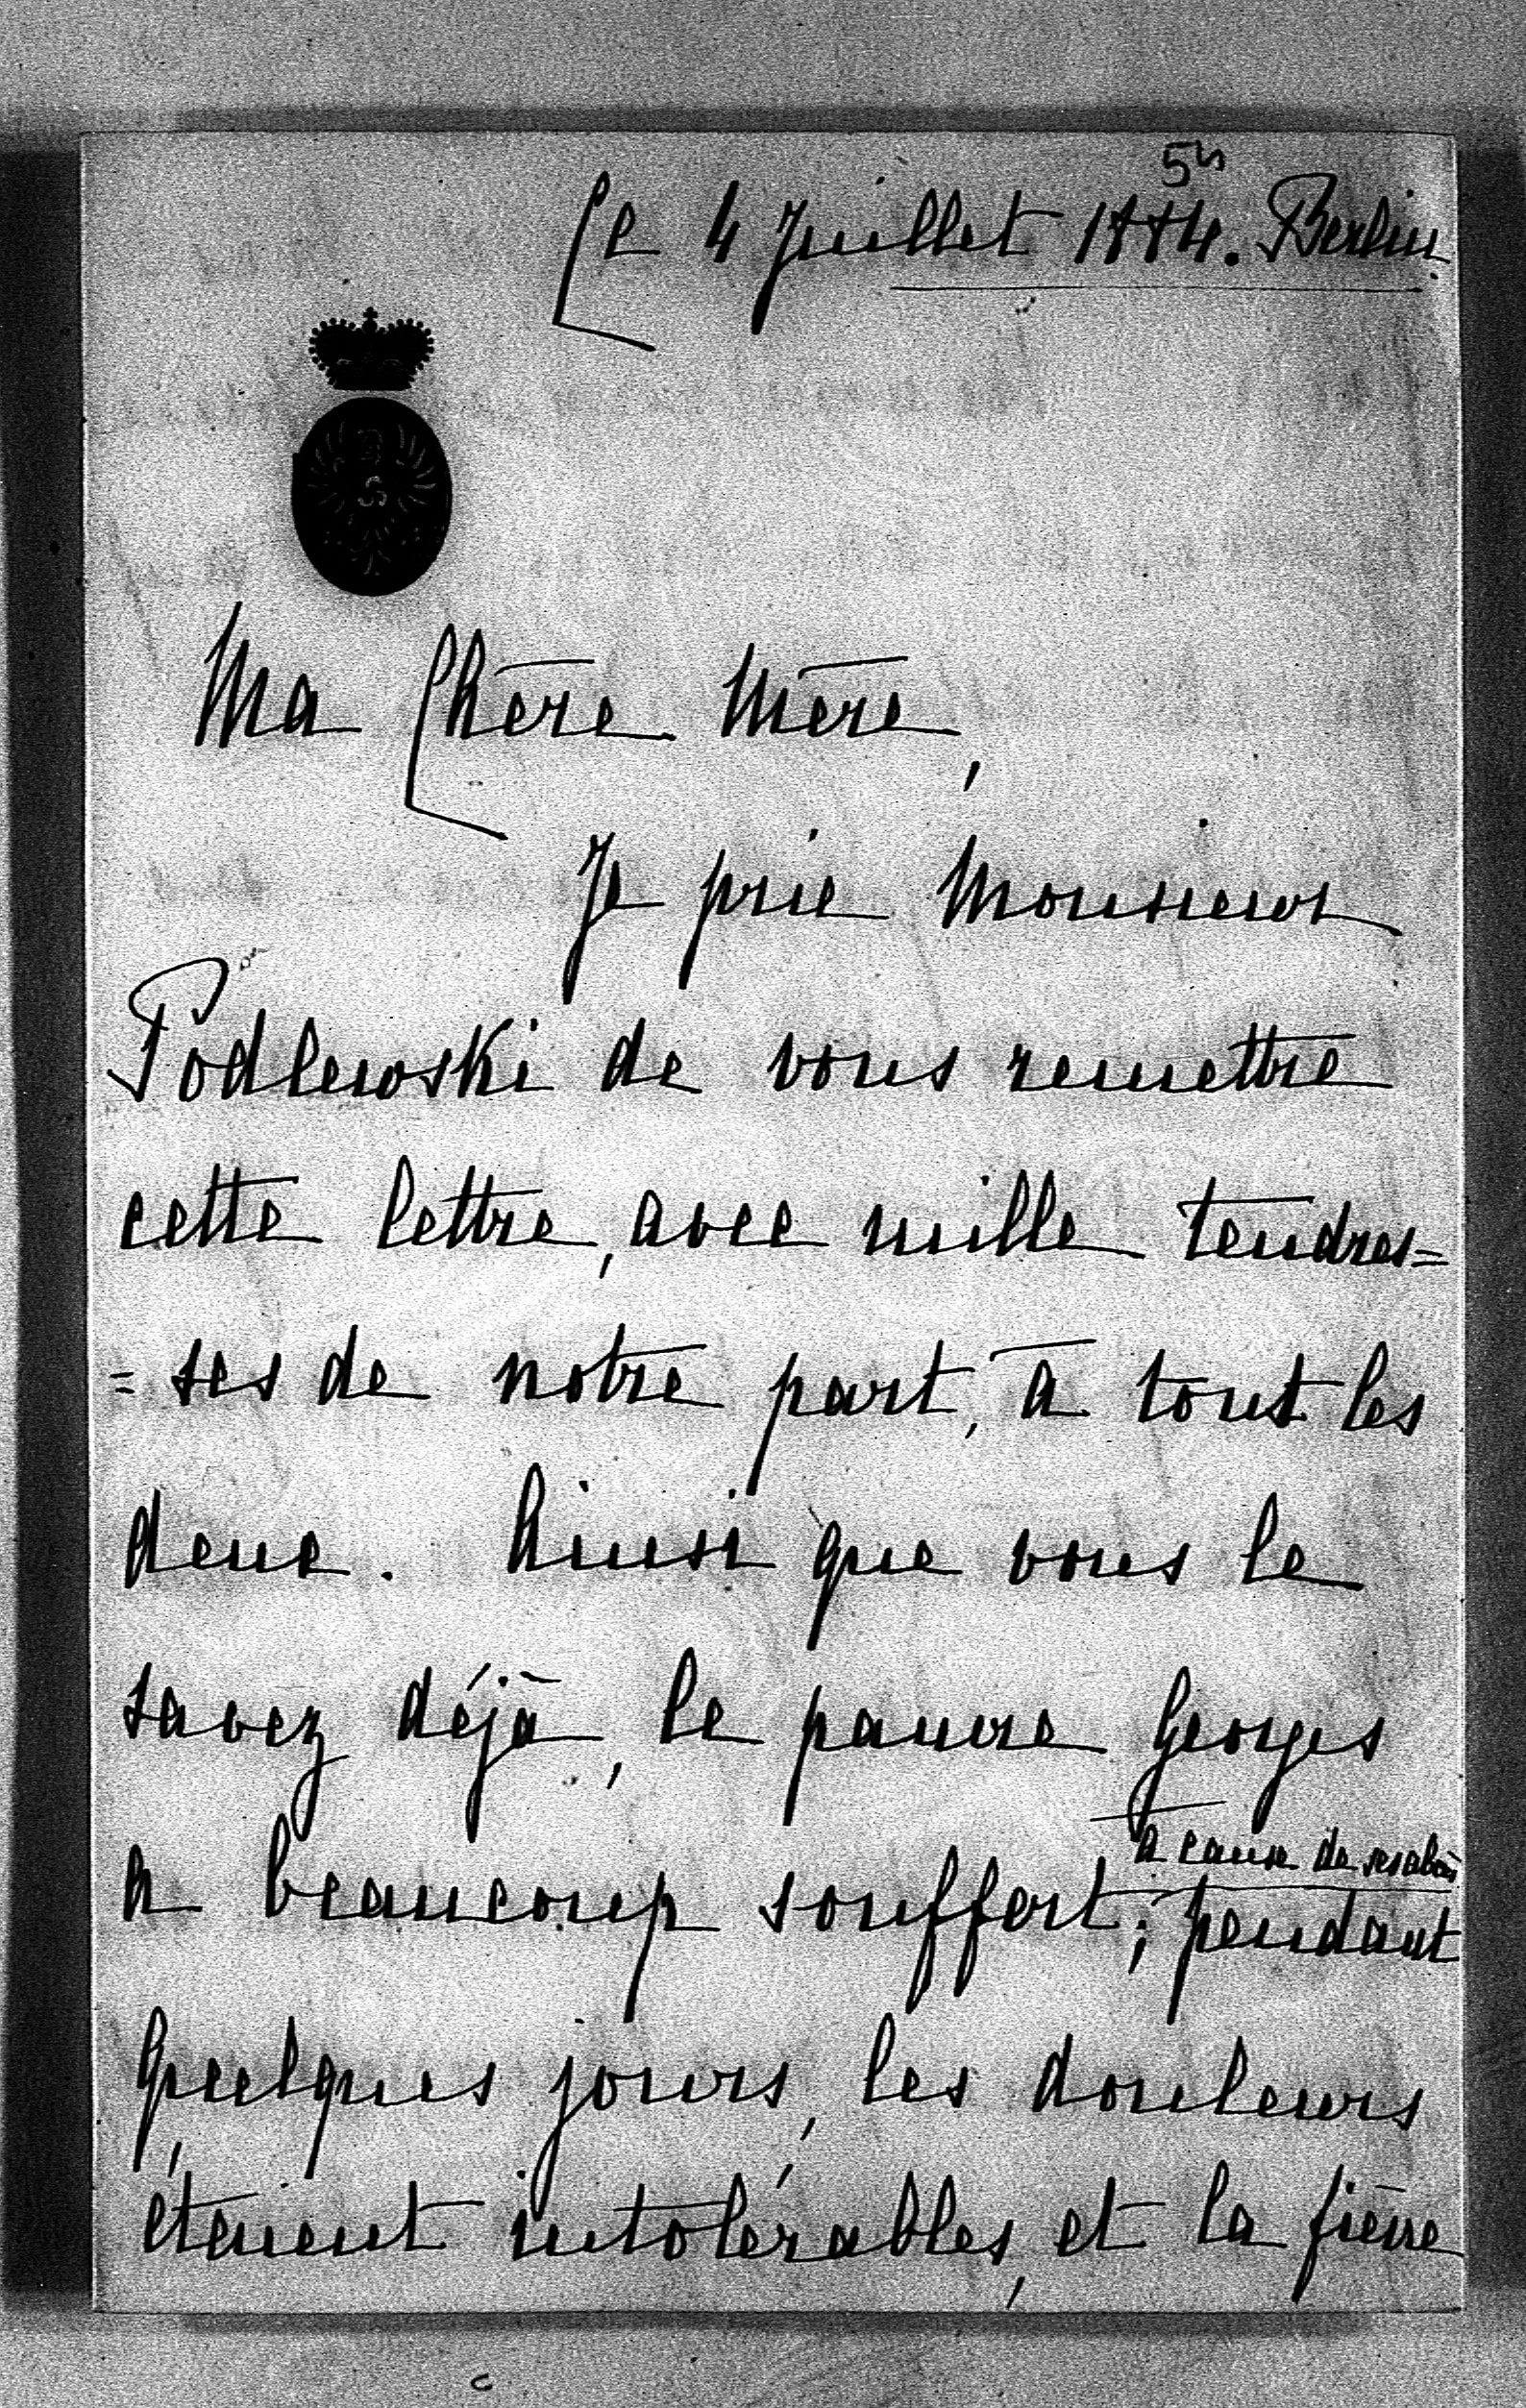 54
Ce 4 Juillet 1884. Berlin.
Ma Chère Mère,
Je prie Monsieur
Podlewski de vous remettre
cette lettre, avec mille tendres=
=ses de notre part, à tout les
deux. Ainsi que vous le
savez déjà, le pauvre Georges
à cause de ses abcès
a beaucoup souffert; pendant
quelques jours, les douleurs
étaient intolérables, et la fièvre